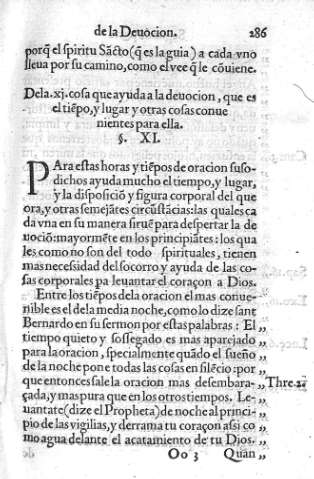 de la Deuocion. 286
porq̃ el spiritu Sãcto (q̃ es la guia) a cada vno
lleua por su camino, como el vee q̃ le cõuiene.
De la .xj. cosa que ayuda a la deuocion, que es
el tiẽpo, y lugar y otras cosas conue
nientes para ella.
§. XI.
PAra estas horas y tiẽpos de oracion suso-
dichos ayuda mucho el tiempo, y lugar,
y la disposiciõ y figura corporal del que
ora, y otras semejãtes circũstãcias: las quales ca
da vna en su manera siruẽ para despertar la de
uociõ: mayormẽte en los principiãtes: los qua
les como no son del todo spirituales, tienen
mas necessidad del socorro y ayuda de las co-
sas corporales pa leuantar el coraçon a Dios.
Entre los tiẽpos de la oracion el mas conue-
nible es el de la media noche, como lo dize sant
Bernardo en su sermon por estas palabras: El „
tiempo quieto y sossegado es mas aparejado „
para la oracion, specialmente quãdo el sueño „
de la noche pone todas las cosas en silẽcio: por „
que entonces sale la oracion mas desembara- „ Thre. 2.
çada, y mas pura que en los otros tiempos. Le- „
uantate (dize el Propheta) de noche al princi- „
pio de las vigilias, y derrama tu coraçon assi co „
mo agua delante el acatamiento de tu Dios. „
Oo 3 Quan „